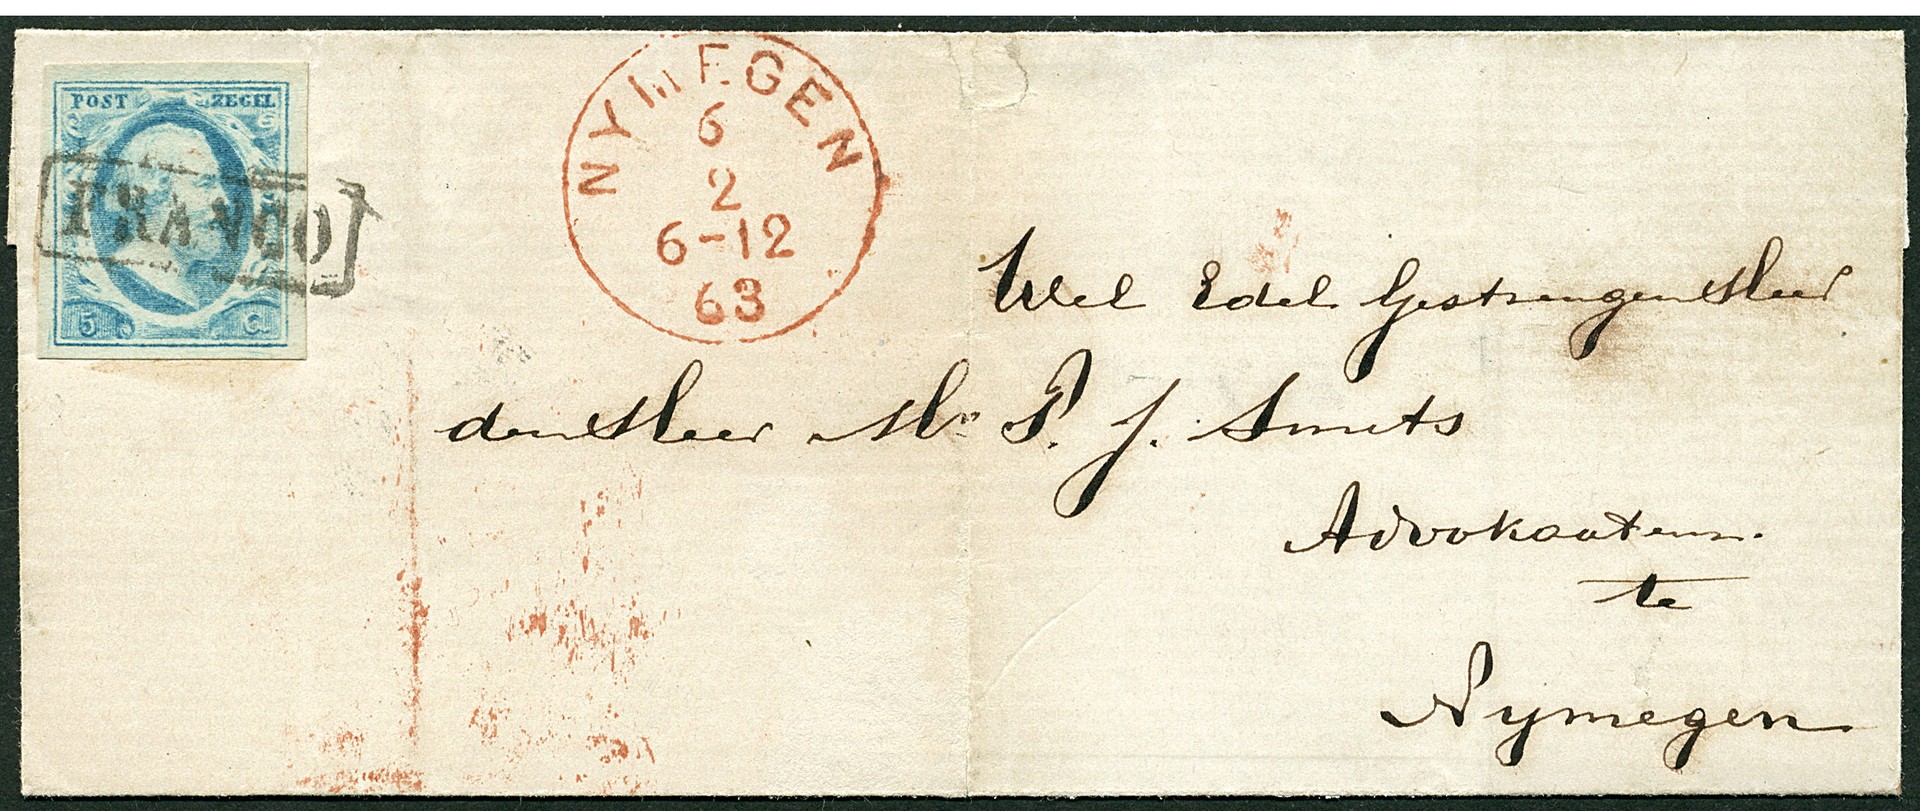 POST ZEGEL
5 C.
FRANCO
NYMEGEN
6
2
6-12
63
Wel Edel Gestrengen Heer
den Heer Mr P. J. Smits
Advokaat
te
Nymegen